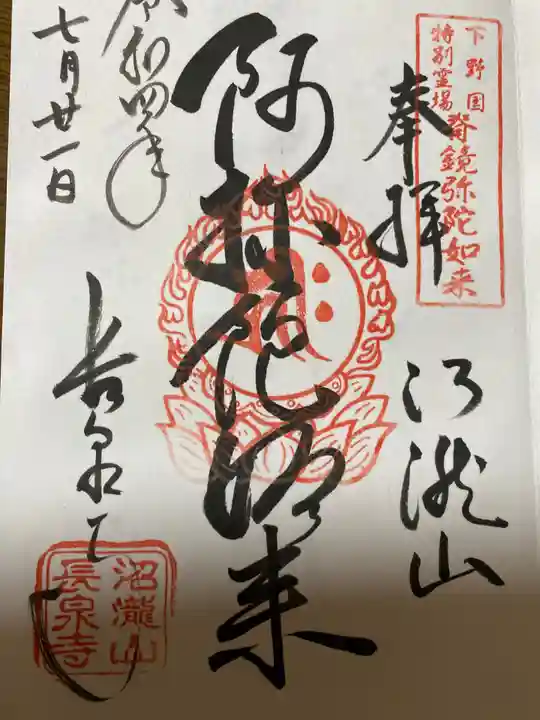 下野国
特別霊場
脊鏡弥陀如来
奉拝
沼瀧山
阿弥陀如来
令和四年
七月廿一日
長泉寺
沼瀧山
長泉寺